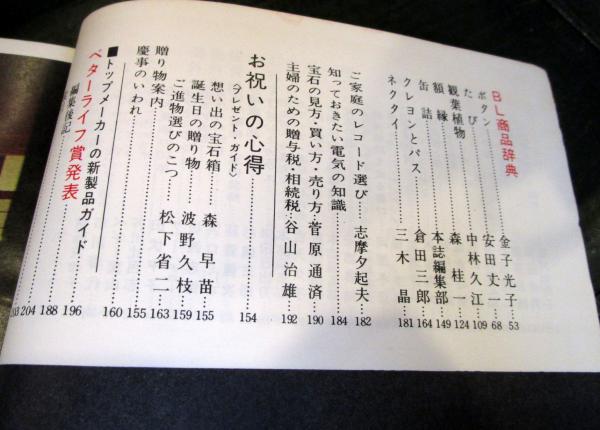 BL商品辞典
ボタン……金子光子 53
たび……安田丈一 68
観葉植物……中林久江 109
額縁……森桂一 124
缶詰……本誌編集部 149
クレヨンとパス……倉田三郎 164
ネクタイ……三木晶 181
ご家庭のレコード選び……志摩夕起夫 182
知っておきたい電気の知識……184
宝石の見方・買い方・売り方……菅原通済 190
主婦のための贈与税・相続税……谷山治雄 192
お祝いの心得
〈プレゼント・ガイド〉……154
想い出の宝石箱……森早苗 155
誕生日の贈り物……波野久枝 159
ご進物選びのこつ……松下省二 163
贈り物案内……155
慶事のいわれ……160
■トップメーカーの新製品ガイド……188
ベターライフ賞発表……196
編集後記……204